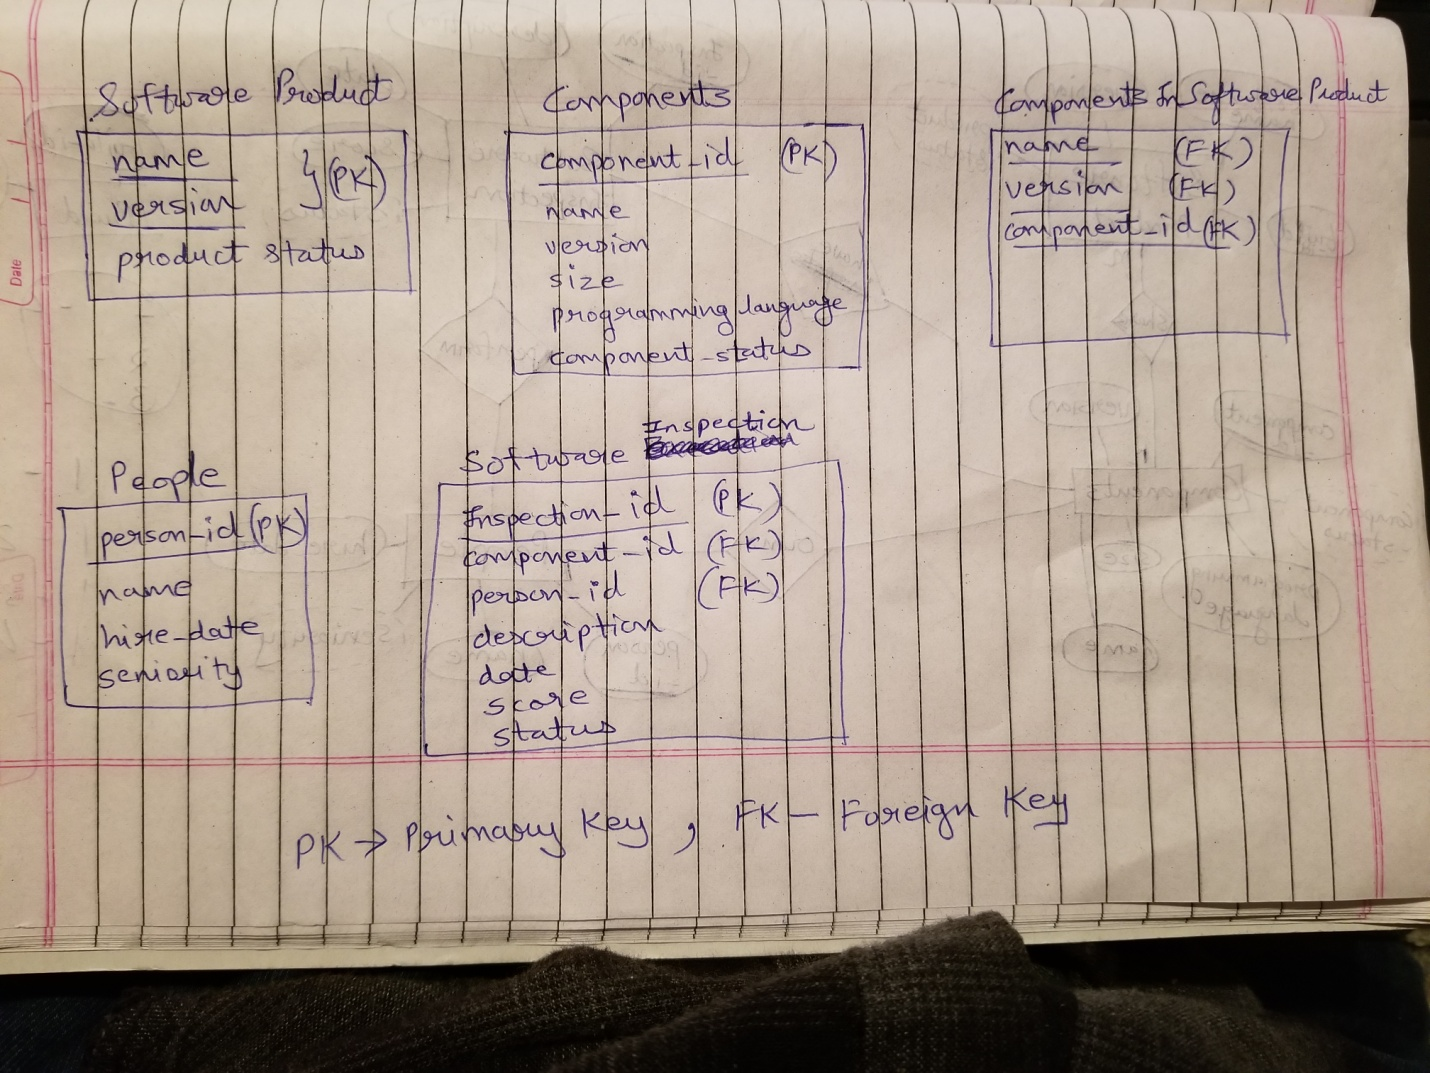 Software Product
name
version } (PK)
product status
Components
component_id (PK)
name
version
size
programming language
component_status
Components In Software Product
name (FK)
version (FK)
component_id (FK)
People
person_id (PK)
name
hire_date
seniority
Software Inspection
Inspection_id (PK)
component_id (FK)
person_id (FK)
description
date
score
status
PK → Primary Key , FK — Foreign Key
Date